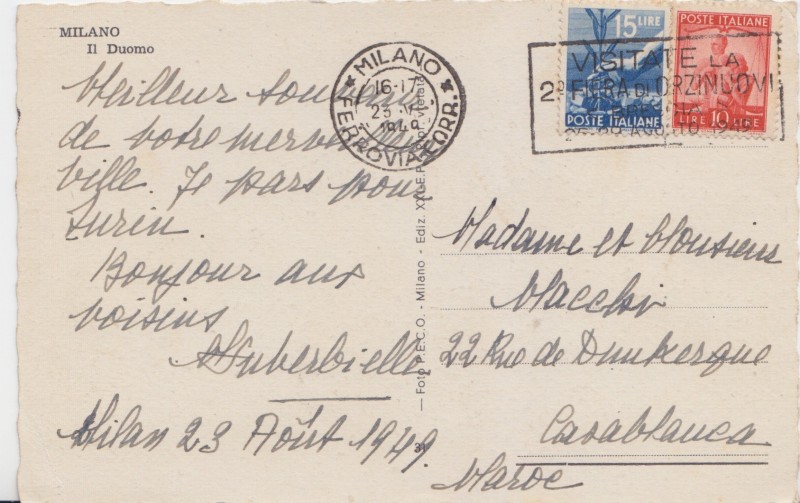 MILANO
Il Duomo
Meilleur souvenir
de votre merveilleuse
ville. Je pars pour
Turin.
Bonjour aux
voisins
Milan 23 Août 1949.
MILANO
16-17
1949
FERROVIA CORR.
15 LIRE
POSTE ITALIANE
POSTE ITALIANE
LIRE 10 LIRE
VISITATE LA
2ª FIERA DI ORZINUOVI
AGOSTO 1949
— Foto P.E.C.O. - Milano - Ediz.
Madame et Monsieur
Macchi
22 Rue de Dunkerque
Casablanca
Maroc